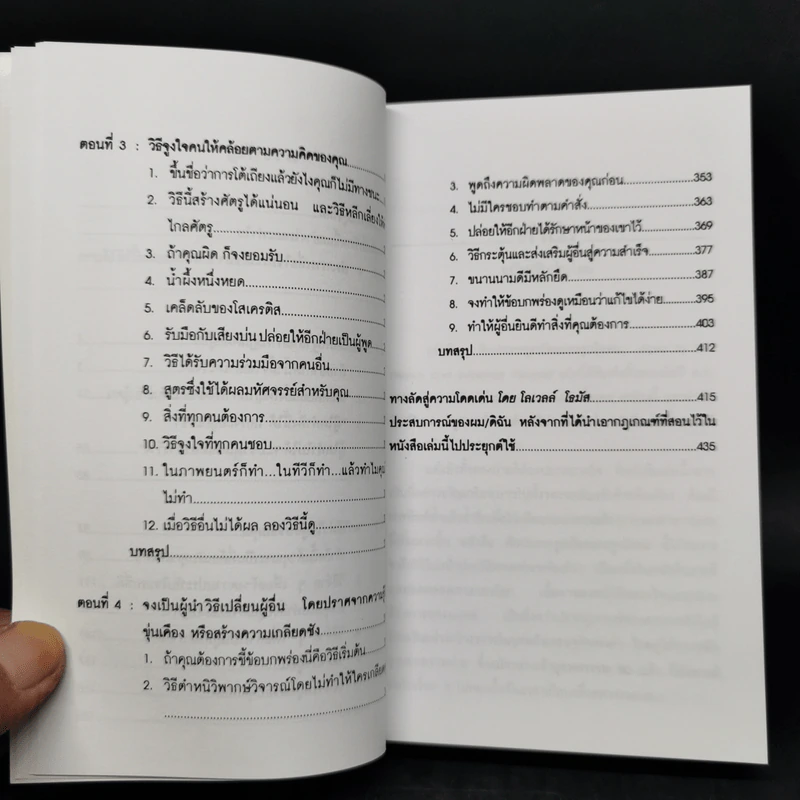 ตอนที่ 3 : วิธีจูงใจคนให้คล้อยตามความคิดของคุณ
1. ขึ้นชื่อว่าการโต้เถียงแล้วยังไงคุณก็ไม่มีทางชนะ
2. วิธีนี้สร้างศัตรูได้แน่นอน และวิธีหลีกเลี่ยงให้
ไกลศัตรู
3. ถ้าคุณผิด ก็จงยอมรับ
4. น้ำผึ้งหนึ่งหยด
5. เคล็ดลับของโสเครติส
6. รับมือกับเสียงบ่น ปล่อยให้อีกฝ่ายเป็นผู้พูด
7. วิธีได้รับความร่วมมือจากคนอื่น
8. สูตรซึ่งใช้ได้ผลมหัศจรรย์สำหรับคุณ
9. สิ่งที่ทุกคนต้องการ
10. วิธีจูงใจที่ทุกคนชอบ
11. ในภาพยนตร์ก็ทำ...ในทีวีก็ทำ...แล้วทำไมคุณ
ไม่ทำ
12. เมื่อวิธีอื่นไม่ได้ผล ลองวิธีนี้ดู
บทสรุป
ตอนที่ 4 : จงเป็นผู้นำ วิธีเปลี่ยนผู้อื่น โดยปราศจากความ
ขุ่นเคือง หรือสร้างความเกลียดชัง
1. ถ้าคุณต้องการชี้ข้อบกพร่องนี่คือวิธีเริ่มต้น
2. วิธีตำหนิวิพากษ์วิจารณ์โดยไม่ทำให้ใครเกลียด
3. พูดถึงความผิดพลาดของคุณก่อน 353
4. ไม่มีใครชอบทำตามคำสั่ง 363
5. ปล่อยให้อีกฝ่ายได้รักษาหน้าของเขาไว้ 369
6. วิธีกระตุ้นและส่งเสริมผู้อื่นสู่ความสำเร็จ 377
7. ขนานนามดีมีหลักยึด 387
8. จงทำให้ข้อบกพร่องดูเหมือนว่าแก้ไขได้ง่าย 395
9. ทำให้ผู้อื่นยินดีทำสิ่งที่คุณต้องการ 403
บทสรุป 412
ทางลัดสู่ความโดดเด่น โดย โลเวลล์ โธมัส 415
ประสบการณ์ของผม/ดิฉัน หลังจากที่ได้นำเอากฎเกณฑ์ที่สอนไว้ใน
หนังสือเล่มนี้ไปประยุกต์ใช้ 435